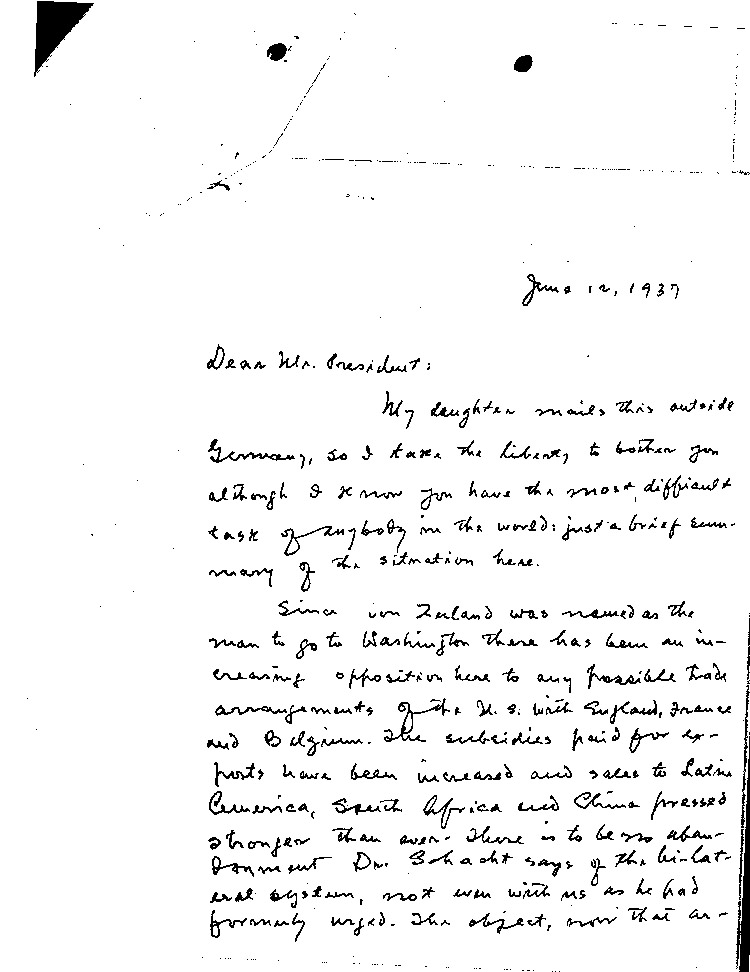 June 12, 1937
Dear Mr. President:
My daughter mails this outside
Germany, so I take the liberty to bother you
although I know you have the most difficult
task of anybody in the world: just a brief sum-
mary of the situation here.
Since von Zeeland was named as the
man to go to Washington there has been an in-
creasing opposition here to any possible trade
arrangements of the U. S. with England, France
and Belgium. The subsidies paid for ex-
ports have been increased and sales to Latin
America, South Africa and China pressed
stronger than ever. There is to be no aban-
donment Dr. Schacht says of the bi-lat-
eral system, not even with us as he had
formerly urged. The object, now that ar-